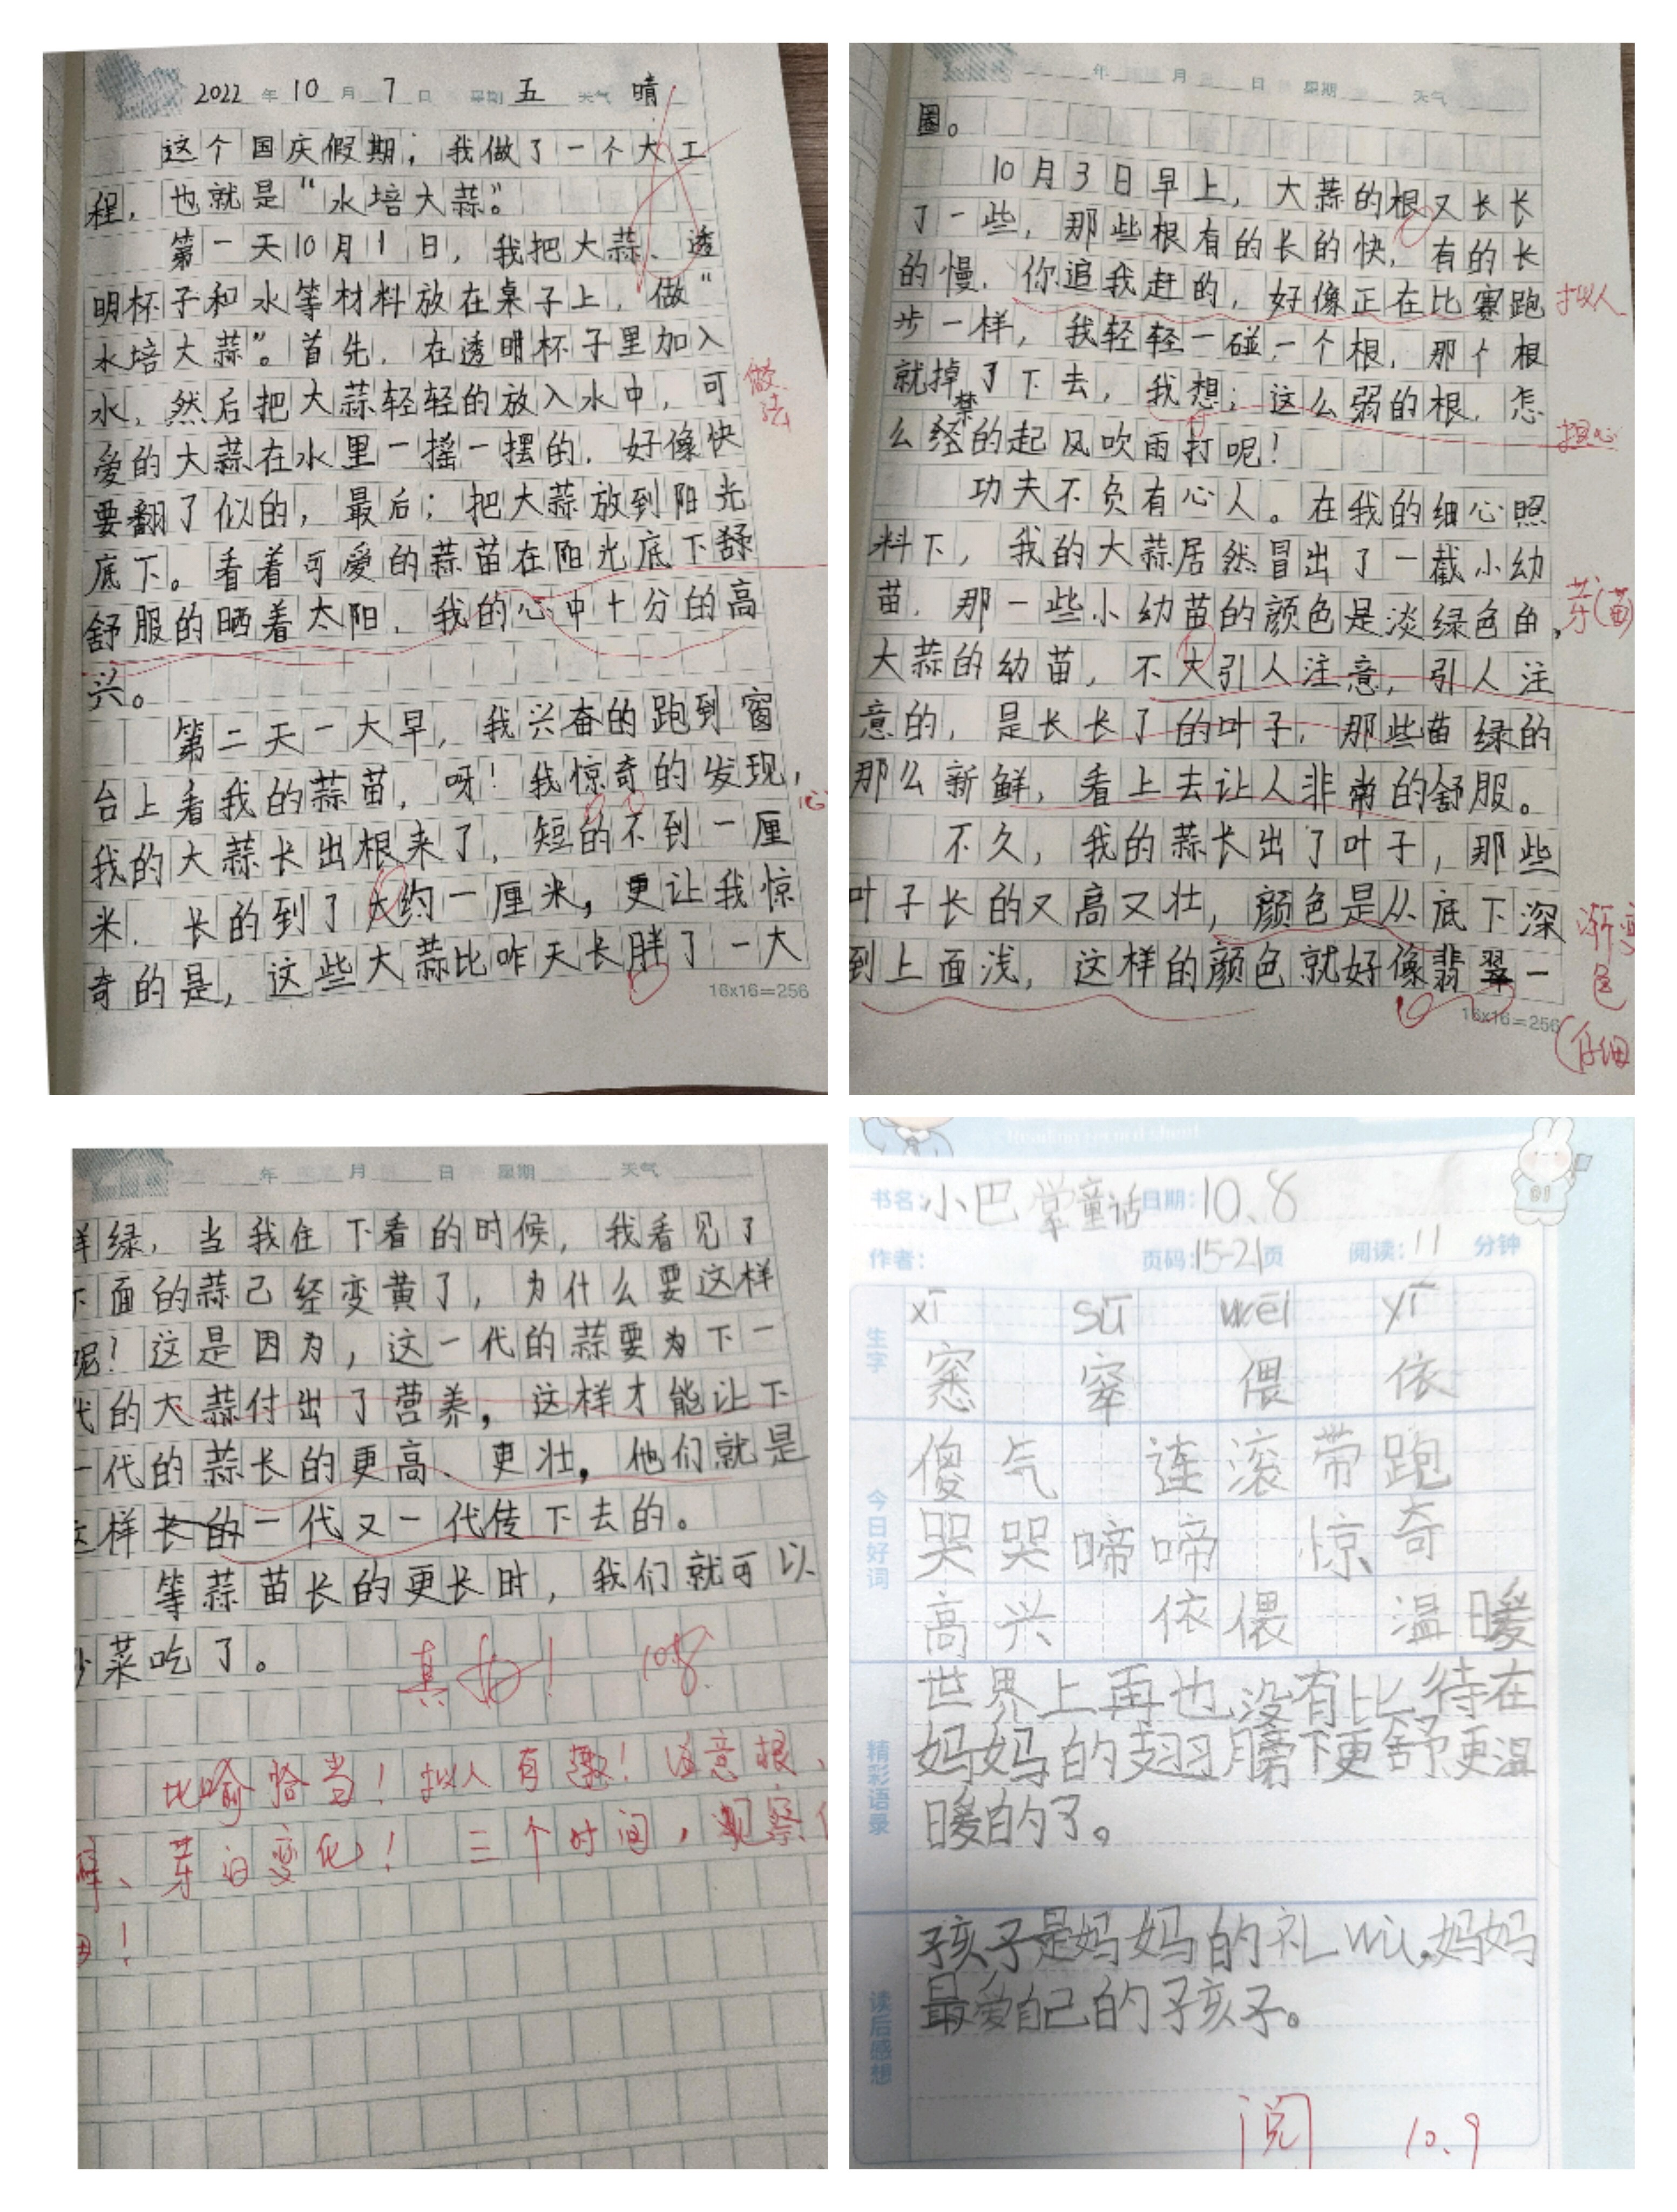 2022 年 10 月 7 日 星期 五 天气 晴
这个国庆假期，我做了一个大工
程，也就是“水培大蒜。”
第一天10月1日，我把大蒜、透
明杯子和水等材料放在桌子上，做“
水培大蒜”。首先，在透明杯子里加入
水，然后把大蒜轻轻的放入水中，可
做法
爱的大蒜在水里一摇一摆的，好像快
要翻了似的，最后；把大蒜放到阳光
底下。看着可爱的蒜苗在阳光底下舒
舒服的晒着太阳，我的心中十分的高
兴。
第二天一大早，我兴奋的跑到窗
台上看我的蒜苗，呀！我惊奇的发现，
我的大蒜长出根来了，短的不到一厘
米，长的到了大约一厘米，更让我惊
奇的是，这些大蒜比昨天长胖了一大
16x16=256
年 月 日 星期 天气
圈。
10月3日早上，大蒜的根又长长
了一些，那些根有的长的快，有的长
的慢，你追我赶的，好像正在比赛跑
拟人
步一样，我轻轻一碰一个根，那个根
就掉了下去，我想；这么弱的根，怎
禁
么经的起风吹雨打呢！
担心
功夫不负有心人。在我的细心照
料下，我的大蒜居然冒出了一截小幼
苗，那一些小幼苗的颜色是淡绿色的，
芽（苗）
大蒜的幼苗，不大引人注意，引人注
意的，是长长了的叶子，那些苗绿的
那么新鲜，看上去让人非常的舒服。
不久，我的蒜长出了叶子，那些
叶子长的又高又壮，颜色是从底下深
渐变色
到上面浅，这样的颜色就好像翡翠一
16x16=256
（仔细
年 月 日 星期 天气
样绿，当我住下看的时候，我看见了
下面的蒜己经变黄了，为什么要这样
呢！这是因为，这一代的蒜要为下一
代的大蒜付出了营养，这样才能让下
一代的蒜长的更高、更壮，他们就是
这样长的一代又一代传下去的。
等蒜苗长的更长时，我们就可以
炒菜吃了。
真好！ 10.8
比喻恰当！拟人有趣！注意根、
芽的变化！三个时间，观察
！
书名：小巴掌童话 日期：10.8
作者： 页码：15-21页 阅读：11 分钟
生字
xī sū wēi yī
窸 窣 偎 依
今日好词
傻气 连滚带跑
哭哭啼啼 惊奇
高兴 依偎 温暖
精彩语录
世界上再也没有比待在
妈妈的翅膀下更舒更温
暖的了。
读后感想
孩子是妈妈的礼wù，妈妈
最爱自己的孩子。
阅 10.9